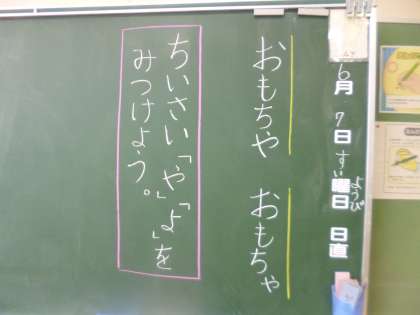 6月7日すい曜日 日直
ようび
おもちや おもちゃ
ちいさい「や」「よ」を
みつけよう。